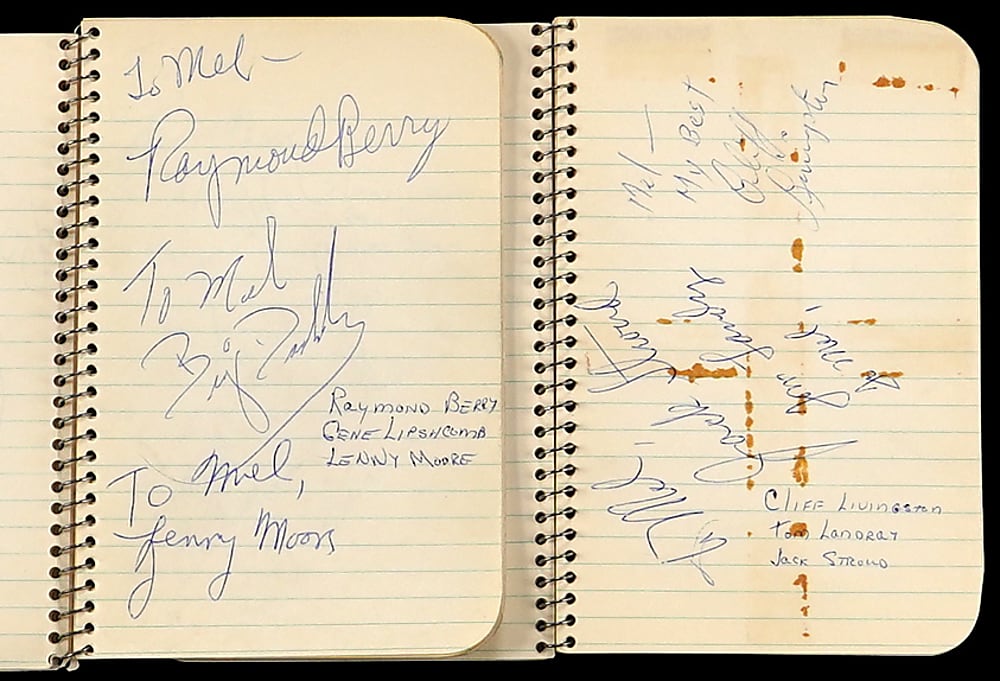 To Mel-
Raymond Berry
To Mel
Big Daddy
Raymond Berry
Gene Lipshcomb
Lenny Moore
To Mel,
Lenny Moore
Mel -
My Best
Cliff
Livingston
To Mel,
Tom Landry
To Mel,
Jack Stroud
Cliff Livingston
Tom Landray
Jack Stroud